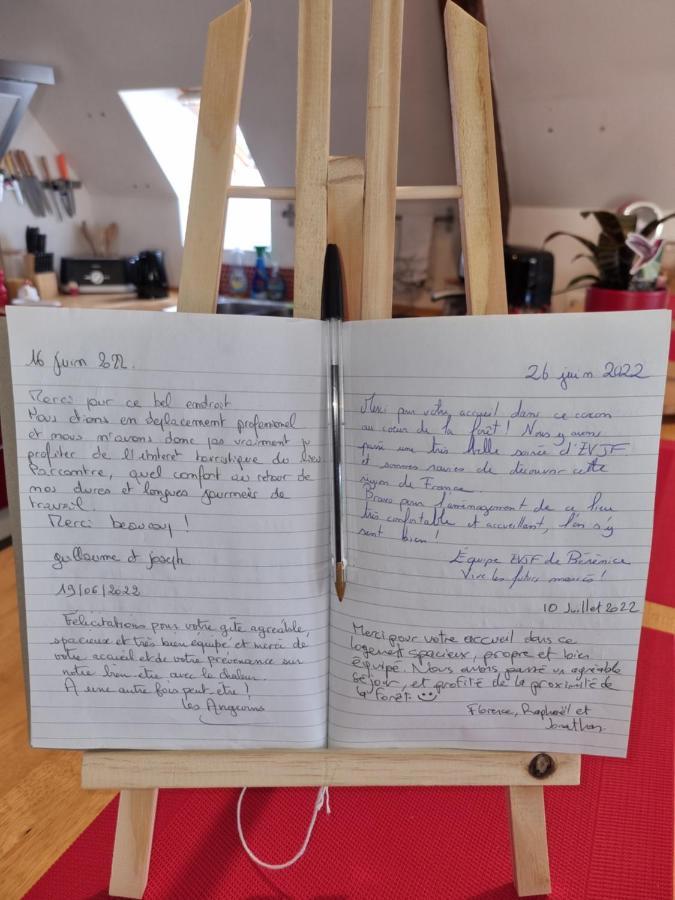 16 juin 2022.
Merci pour ce bel endroit
Nous étions en déplacement professionnel
et nous n'avons donc pas vraiment pu
profiter de l'intéret touristique du lieu
Par contre, quel confort au retour de
nos dures et longues journées de
travail.
Merci beaucoup !
guillaume et joseph
19/06/2022
Félicitations pour votre gîte agréable,
spacieux et très bien équipé et merci de
votre accueil et de votre prévenance sur
notre bien être avec la chaleur.
A une autre fois peut-être !
Les Angevins
26 juin 2022
Merci pour votre accueil dans ce cocon
au cœur de la forêt ! Nous y avons
passé une très belle soirée d'EVJF
et sommes ravies de découvrir cette
région de France.
Bravo pour l'aménagement de ce lieu
très confortable et accueillant, l'on s'y
sent bien !
Équipe EVJF de Bérénice
Vive les futurs mariés !
10 Juillet 2022
Merci pour votre accueil dans ce
logement spacieux, propre et bien
équipé. Nous avons passé un agréable
séjour, et profité de la proximité de
la forêt. ☺
Florence, Raphaël et
Jonathan.